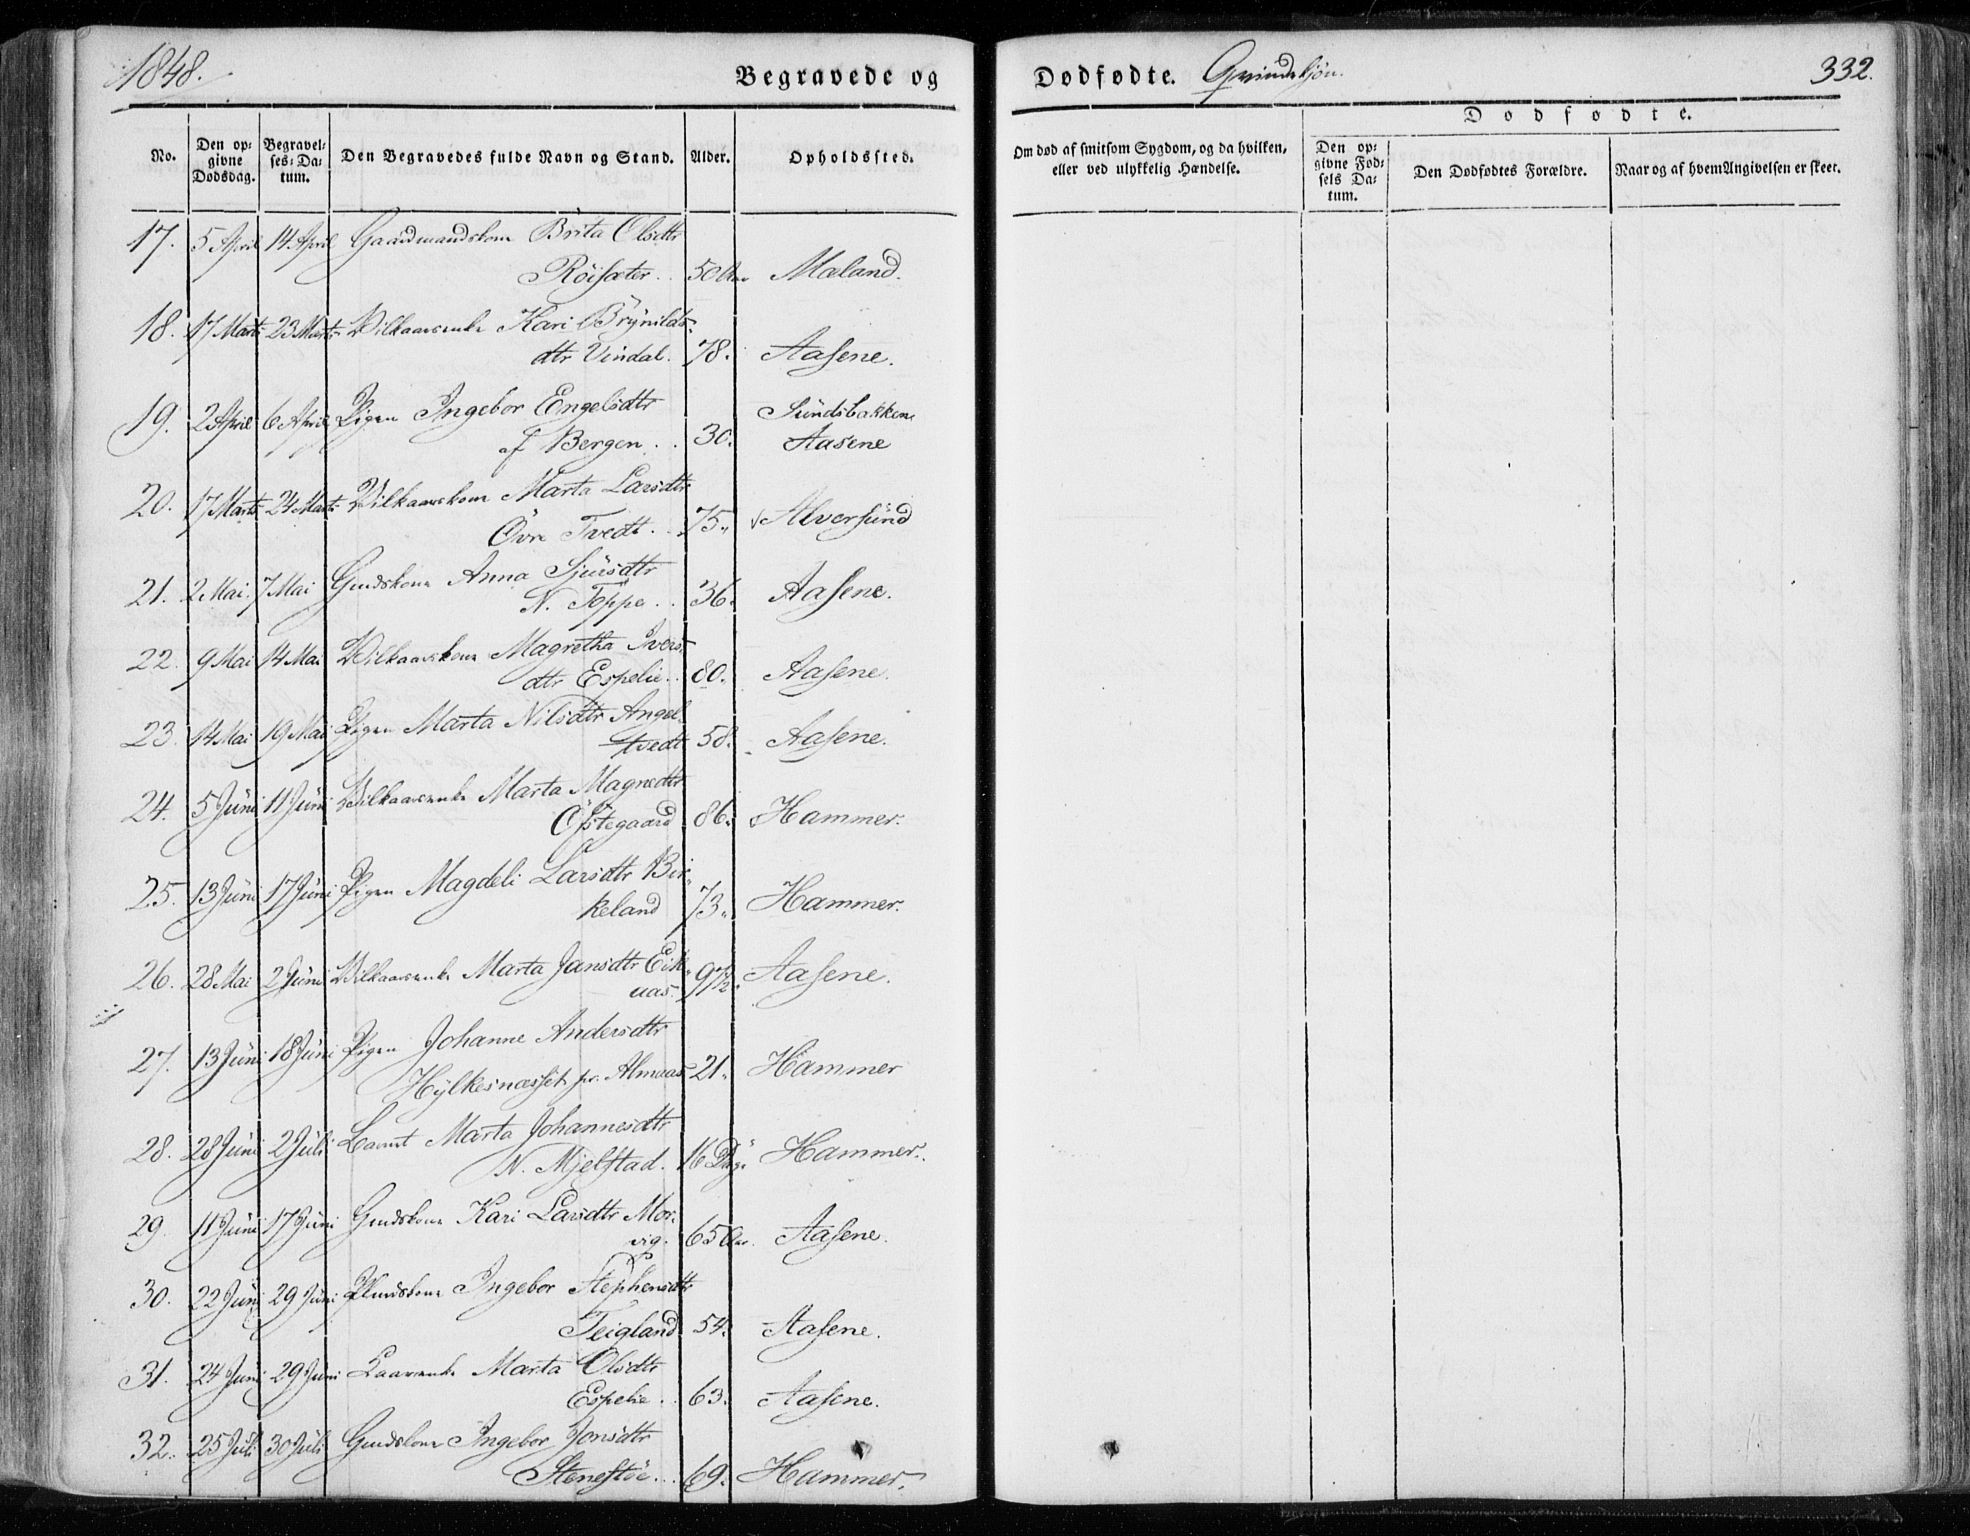 1848.
Begravede og
Dødfødte. Qvindekjön.
332.
No.
Den opgivne Dødsdag.
Begravelses-Datum.
Den Begravedes fulde Navn og Stand.
Alder.
Opholdssted.
Om død af smitsom Sygdom, og da hvilken, eller ved ulykkelig Hændelse.
Dødfødte.
Den opgivne Fødsels Datum.
Den Dødfødtes Forældre.
Naar og af hvem Angivelsen er skeet.
17. 5 April 14 April Gaardmandskone Brita Olsdtr
Röisæter .. 50 Aar Mæland.
18. 17 Marts 23 Marts Vilkaarsenke Kari Brÿnilds-
dtr Vindal. 78. Aasene.
19. 2 April 6 April Pigen Ingebor Engelsdtr Sündsbakken
af Bergen . . 30. Aasene
20. 17 Marts 24 Marts Vilkaarskone Marta Larsdtr
Övre Tvedt . . 75. Alversünd
21. 2 Mai. 7 Mai Gmdskone Anna Sjürsdtr
N. Toppe . . 36. Aasene.
22. 9 Mai 14 Mai Vilkaarskone Magretha Ivers-
dtr Espelie . . 80. Aasene.
23. 14 Mai 19 Mai Pigen Marta Nilsdtr Angel-
tvedt 58. Aasene.
24. 5 Jüni 11 Jüni Vilkaarsenke Marta Magnedtr
Östegaard 86. Hammer.
25. 13 Jüni 17 Jüni Pigen Magdeli Larsdtr Bir-
keland 73. Hammer.
26. 28 Mai 2 Jüni Vilkaarsenke Marta Jansdtr Eik-
naas. 97½. Aasene.
27. 13 Jüni 18 Jüni Pigen Johanne Andersdtr
Hÿlkesnæsset pr. Almaas 21. Hammer
28. 28 Jüni 2 Jüli Barnet Marta Johannesdtr
N. Mjelstad. 16 Dage Hammer.
29. 11 Jüni 17 Jüni Gmdskone Kari Larsdtr Mor-
vig. 65 Aar. Aasene.
30. 22 Jüni 29 Jüni Plmdskone Ingebor Stephensdtr
Teigland 54. Aasene.
31. 24 Jüni 29 Jüni Kaarenke Marta Olsdtr
Espelie . . 63. Aasene.
32. 25 Jüli 30 Jüli Gmdskone Ingebor Jonsdtr
Stenestöe . . 69. Hammer.